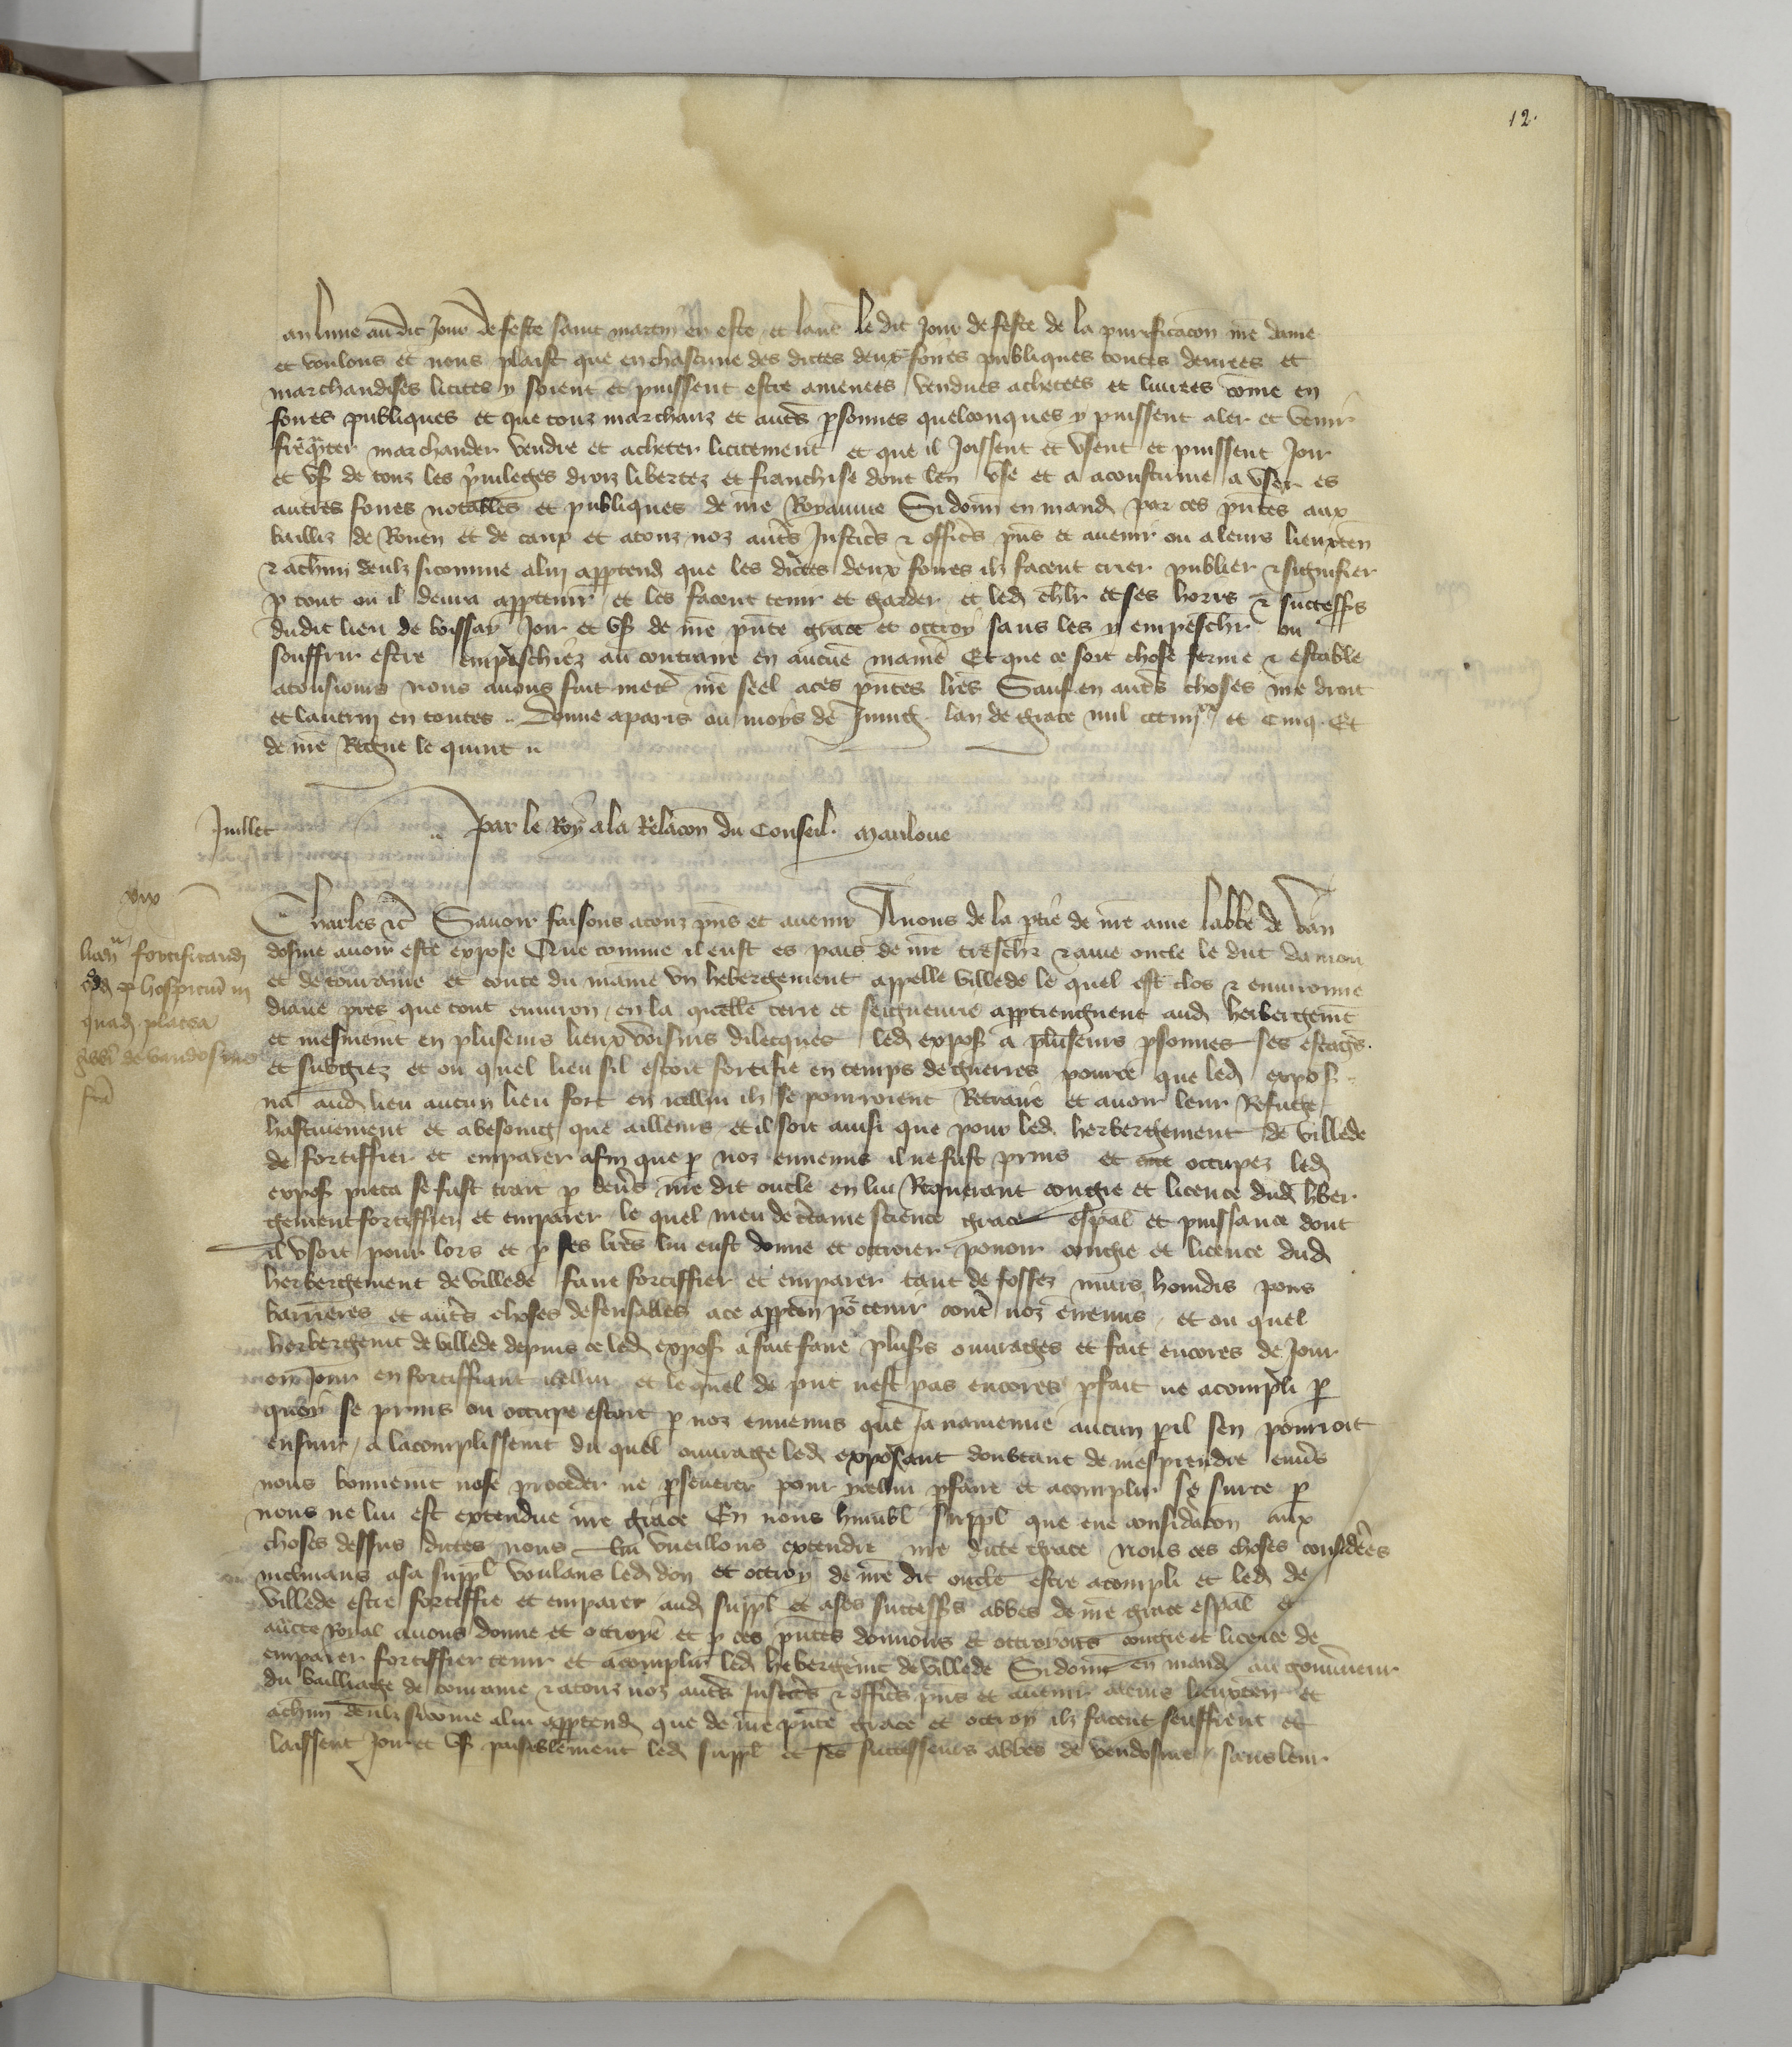 12.
an lune audit Jour de feste saint martin en este et laut̃ le dit Jour de feste de la purificacõn nr̃e dame
et voulons et nous plaist que en chascune des dictes deux foires publiques toutes denrees et
marchandises licites y soient et puissent estre amenees vendues achetees et livrees cõme en
foires publiques et que touz marchanz et autr̃s p̃sonnes quelconques y puissent aler et venir
freq̃nter marchander vendre et acheter licitement et que il Joissent et usent et puissent Joir
et us̃ de touz les p̃vileges droiz libertez et franchise dont len use et a acoustume a user es
autres foires notables et publiques de nr̃e Royaume Si donñ en mand̃ par ces pñtes aux
bailliz de Rouen et de caux et a touz noz autr̃s Justic̃s & offic̃s pñs et avenir ou a leurs lieuxteñ
& a chũn deulz si comme a lui appartend̃ que les dictes deux foires ilz facent crier publier & signifier
p̃ tout ou il devra appartenir et les facent tenir et garder et led̃ chl̃r et ses hoirs & success̃s
dudit lieu de boissay Joir et us̃ de nr̃e pñte grace et octroy sans les y empeschr̃ ou
souffrir estre empeschiez au contraire en aucuñe maniẽ Et que ce soit chose ferme & estable
a tousiours nous avons fait mettr̃ nr̃e seel a ces pñtes lr̃es Sauf en autr̃s choses nr̃e droit
et lautrui en toutes .. Donne a paris ou moys de Juing lan de grace mil ccc iiijxx et cinq. Et
de nr̃e Regne le quint ..
Juillet
.. Par le Roy a la Relacõn du Conseil. Mauloue
xix
licen̄ fortificand̃
hospiciũ in
quad̃ placea
de vandosme
Charles &c̃ Savoir faisons a touz pñs et avenir A nous de la p̃tie de nr̃e ame labbe de Van
dosme avoir este expose Que comme il eust es pais de nr̃e treschr̃ & ame oncle le duc danjou
et de touraine et conte du maine un hebergement appelle Villede le quel est clos & environne
diaue pres que tout environ, en la quelle terre et seigneurie appartiengnent aud̃ herbergemt̃
et mesment̃ en plusieurs lieux voisins dilecques led̃ expos̃ a plusieurs p̃sonnes ses estag̃s.
et subgiez et ou quel lieu sil estoit fortifie en temps de guerres pource que led̃ expos̃
na aud̃ lieu aucun lieu fort en icellui ilz se pourroient Retraire et avoir leur Refuge
hastivement et a besoing que ailleurs et il soit ainsi que pour led̃. herbergement de Villede
de fortiffier et emparer afin que p̃ noz ennemis il ne fust prins et occupez led̃
expos̃ pieca se fust trait p̃ devr̃s nr̃e dit oncle en lui Requerant congie et licence dud̃ hber
gement fortiffier et emparer le quel meu de c̃taine science grace esp̃al et puissance dont
il usoit pour lors et p̃ ses lr̃es lui eust donne et octroier povoir congie et licence dud̃
herbergement de Villede faire fortiffier et emparer tant de fossez murs hourdis pons
barrieres et autr̃s choses defensables a ce apparteñ por tenir contr̃ noz ennemis, et ou quel
herbergemt̃ de Villede depuis ce led̃ expos̃ a fait faire plus̃rs ouvrages et fait encores de Jour
en Jour en fortiffiant icellui et le quel de pñt nest pas encores p̃fait ne acompli p̃
quoy se prins ou occupe estoit p̃ noz ennemis que Ja naviengne aucun p̃il sen pourroit
ensuir, a lacomplissemt̃ du quel ouvrage led̃ exposant doubtant de mesprendre envr̃s
nous bonnemt̃ nose proceder ne p̃severer pour ycellui p̃faire et acomplir se surce p̃
nous ne lui est extendue nr̃e grace En nous humbl̃ suppl̃ que eue consid̃acõn aux
choses dessus dictes nous lui vueillons extendre nr̃e dicte grace Nous ces choses considerees
inclinans a sa suppl̃ voulans led̃ don et octroy de nr̃e dit oncle estre acompli et led̃ de
Villede estre fortiffie et emparer aud̃ suppl̃ et a ses success̃rs abbes de nr̃e grace esp̃al et
auct̃te Royal avons donne et octroye et p̃ ces pñtes donnons et octroyons congie et licence de
emparer fortiffier tenir et acomplir led̃ hebergemt̃ de Villede Si donñ en mand̃ au gouṽneur
du bailliage de touraine & a touz noz autr̃s Justic̃s & offic̃s pñs et avenir a leurs lieuxteñ et
a chũn deulz si cõme a lui appartend̃ que de nr̃e pñte grace et octroy ilz facent seuffrent et
laissent Joir et us̃ paisiblement led̃ suppl̃ et ses successeurs abbes de Vendosme sans leur